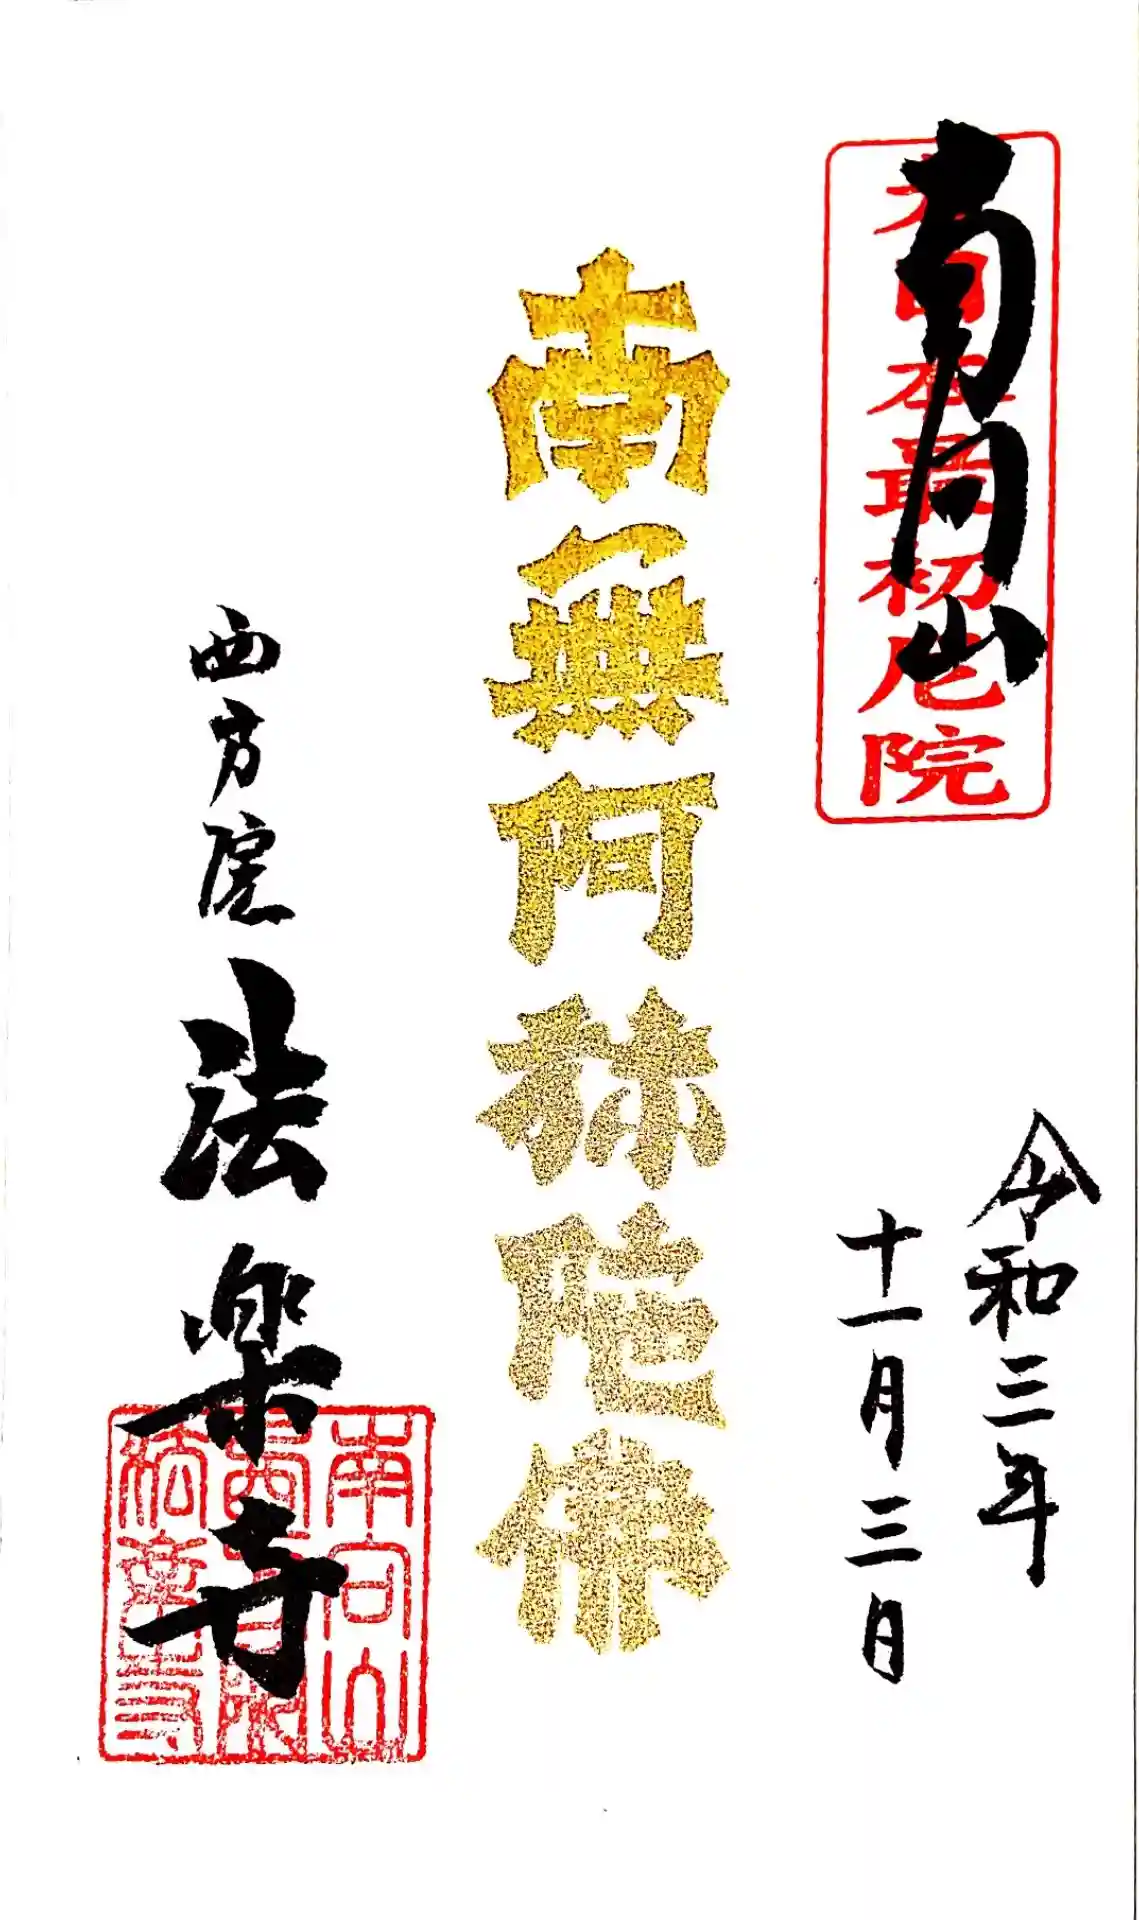 南向山
大日本最初尼院
令和三年
十一月三日
南無阿弥陀佛
西方院 法楽寺
南向山
西方院
法樂寺